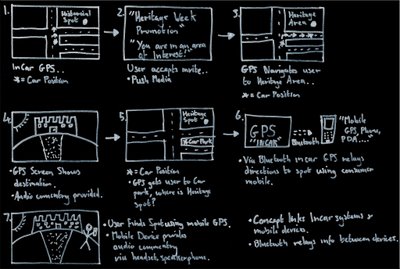 1.
Historical
Spot
InCar GPS..
* = Car Position
2.
"Heritage Week
Promotion
"You are in an area
of Interest!"
User accepts invite..
• Push Media
3.
Heritage
Area..
GPS Navigates user
to Heritage Area..
* = Car Position
4.
• GPS Screen Shows
destination.
• Audio commentary provided.
5.
Heritage
Spot
* Car Park
* = Car Position
• GPS gets user to Car
park, where is Heritage
Spot?
6.
GPS
"INCAR"
Bluetooth
"Mobile
GPS, Phone,
PDA..."
• Via Bluetooth incar GPS relays
directions to spot using consumer
mobile.
7.
• User Finds Spot using mobile GPS.
• Mobile Device provides
audio commentary
via headset, speakerphone.
• Concept links Incar systems &
mobile devices.
• Bluetooth relays info between devices.